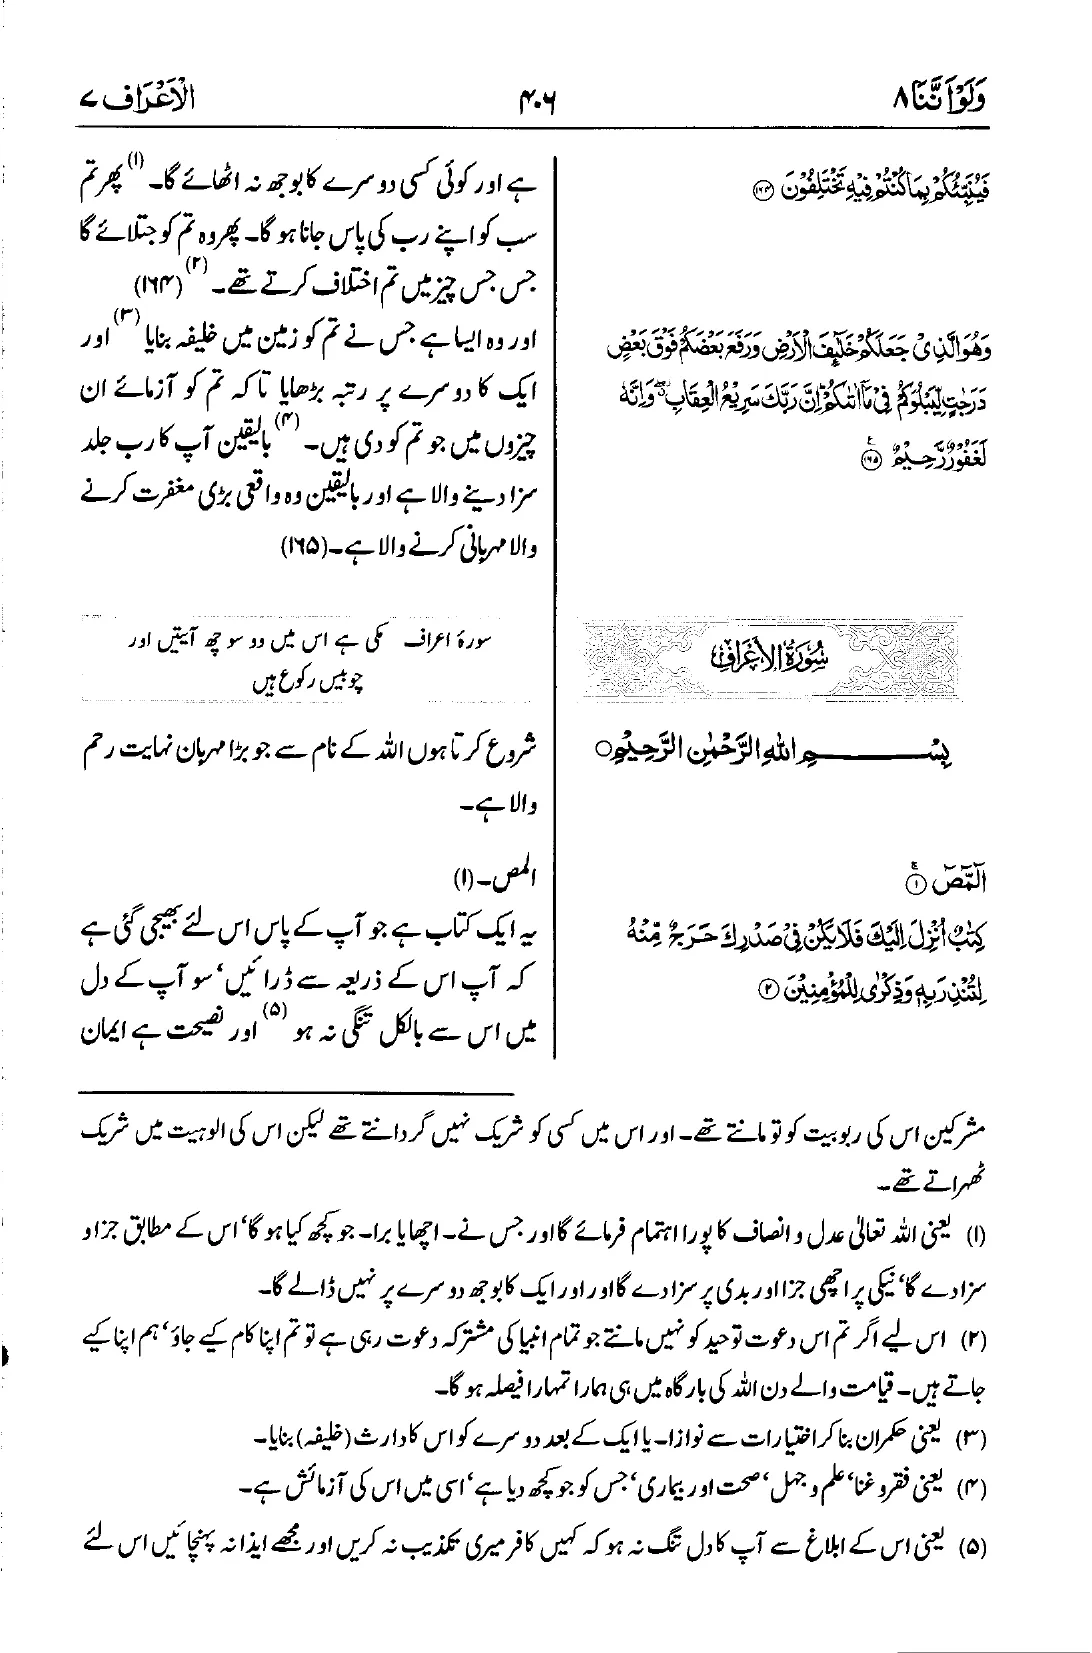 وَلَوْ اَنَّنَا ۸
۴۰۶
الْاَعْرَاف ۷
فَیُنَبِّئُكُمْ بِمَا كُنْتُمْ فِیْهِ تَخْتَلِفُوْنَ ۝۱۶۴
وَهُوَ الَّذِیْ جَعَلَكُمْ خَلٰٓىِٕفَ الْاَرْضِ وَرَفَعَ بَعْضَكُمْ فَوْقَ بَعْضٍ
دَرَجٰتٍ لِّیَبْلُوَكُمْ فِیْ مَاۤ اٰتٰىكُمْ ؕ اِنَّ رَبَّكَ سَرِیْعُ الْعِقَابِ ۖ وَاِنَّهٗ
لَغَفُوْرٌ رَّحِیْمٌ ۝۱۶۵
ہے اور کوئی کسی دوسرے کا بوجھ نہ اٹھائے گا۔ (۱) پھر تم
سب کو اپنے رب کی پاس جانا ہو گا۔ پھر وہ تم کو جتلائے گا
جس جس چیز میں تم اختلاف کرتے تھے۔ (۲) (۱۶۴)
اور وہ ایسا ہے جس نے تم کو زمین میں خلیفہ بنایا (۳) اور
ایک کا دوسرے پر رتبہ بڑھایا تاکہ تم کو آزمائے ان
چیزوں میں جو تم کو دی ہیں۔ (۴) بالیقین آپ کا رب جلد
سزا دینے والا ہے اور بالیقین وہ واقعی بڑی مغفرت کرنے
والا مہربانی کرنے والا ہے۔ (۱۶۵)
سُوْرَةُ الْاَعْرَافِ
سورۂ اعراف مکی ہے اس میں دو سو چھ آیتیں اور
چوبیس رکوع ہیں
بِسْمِ اللهِ الرَّحْمٰنِ الرَّحِیْمِ ○
شروع کرتا ہوں اللہ کے نام سے جو بڑا مہربان نہایت رحم
والا ہے۔
الٓمّٓصٓ ۝۱
كِتٰبٌ اُنْزِلَ اِلَیْكَ فَلَا یَكُنْ فِیْ صَدْرِكَ حَرَجٌ مِّنْهُ
لِتُنْذِرَ بِهٖ وَذِكْرٰی لِلْمُؤْمِنِیْنَ ۝۲
المص۔ (۱)
یہ ایک کتاب ہے جو آپ کے پاس اس لئے بھیجی گئی ہے
کہ آپ اس کے ذریعہ سے ڈرائیں، سو آپ کے دل
میں اس سے بالکل تنگی نہ ہو (۵) اور نصیحت ہے ایمان
مشرکین اس کی ربوبیت کو تو مانتے تھے۔ اور اس میں کسی کو شریک نہیں گردانتے تھے لیکن اس کی الوہیت میں شریک
ٹھہراتے تھے۔
(۱) یعنی اللہ تعالیٰ عدل و انصاف کا پورا اہتمام فرمائے گا اور جس نے۔ اچھا یا برا۔ جو کچھ کیا ہو گا، اس کے مطابق جزا و
سزا دے گا، نیکی پر اچھی جزا اور بدی پر سزا دے گا اور اور ایک کا بوجھ دوسرے پر نہیں ڈالے گا۔
(۲) اس لیے اگر تم اس دعوت توحید کو نہیں مانتے جو تمام انبیا کی مشترکہ دعوت رہی ہے تو تم اپنا کام کیے جاؤ، ہم اپنا کیے
جاتے ہیں۔ قیامت والے دن اللہ کی بارگاہ میں ہی ہمارا تمہارا فیصلہ ہو گا۔
(۳) یعنی حکمران بنا کر اختیارات سے نوازا۔ یا ایک کے بعد دوسرے کو اس کا وارث (خلیفہ) بنایا۔
(۴) یعنی فقر و غنا، علم و جہل، صحت اور بیماری، جس کو جو کچھ دیا ہے، اسی میں اس کی آزمائش ہے۔
(۵) یعنی اس کے ابلاغ سے آپ کا دل تنگ نہ ہو کہ کہیں کافر میری تکذیب نہ کریں اور مجھے ایذا نہ پہنچائیں اس لئے